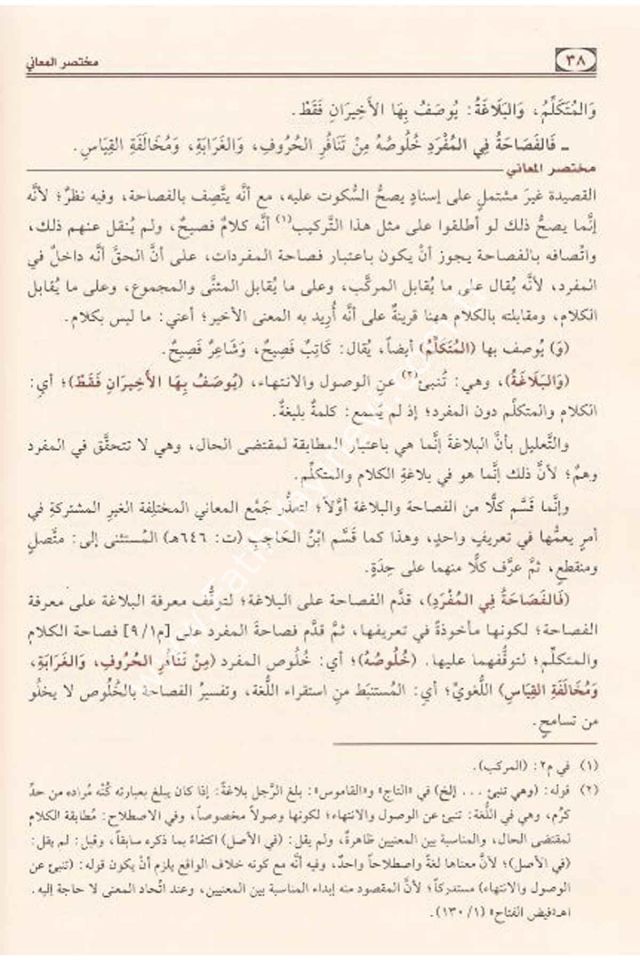 ٣٨
مختصر المعاني
وَالمُتَكَلِّمُ، وَالبَلَاغَةُ: يُوصَفُ بِهَا الأَخِيرَانِ فَقَطْ.
ـ فَالفَصَاحَةُ فِي المُفْرَدِ خُلُوصُهُ مِنْ تَنَافُرِ الحُرُوفِ، وَالغَرَابَةِ، وَمُخَالَفَةِ القِيَاسِ.
مختصر المعاني
القصيدة غيرَ مشتملٍ على إسنادٍ يصحُّ السُّكوت عليه، مع أنه يتَّصِف بالفصاحة، وفيه نظرٌ؛ لأنَّه
إنَّما يصحُّ ذلك لو أطلقوا على مثل هذا التَّركيب(١) أنَّه كلامٌ فصيحٌ، ولم يُنقل عنهم ذلك،
واتِّصافه بالفصاحة يجوز أنْ يكون باعتبار فصاحة المفردات، على أنَّ الحقَّ أنَّه داخلٌ في
المفرد، لأنَّه يُقال على ما يُقابل المركَّب، وعلى ما يُقابل المثنَّى والمجموع، وعلى ما يُقابل
الكلام، ومقابلته بالكلام ههنا قرينةٌ على أنَّه أُريد به المعنى الأخير؛ أعني: ما ليس بكلام.
(وَ) يُوصف بها (المُتَكَلِّمُ) أيضاً، يُقال: كَاتِبٌ فَصِيحٌ، وَشَاعِرٌ فَصِيحٌ.
(وَالبَلَاغَةُ)، وهي: تُنبئُ(٢) عنِ الوصول والانتهاء، (يُوصَفُ بِهَا الأَخِيرَانِ فَقَطْ)؛ أي:
الكلام والمتكلِّم دون المفرد؛ إذ لم يُسمع: كلمةٌ بليغةٌ.
والتَّعليل بأنَّ البلاغة إنَّما هي باعتبار المطابقة لمقتضى الحال، وهي لا تتحقَّق في المفرد
وهمٌ؛ لأنَّ ذلك إنَّما هو في بلاغةِ الكلام والمتكلِّم.
وإنَّما قسَّم كلًّا من الفصاحة والبلاغة أوَّلاً؛ لتعذُّر جَمْع المعاني المختلِفة الغيرِ المشترِكة في
أمرٍ يعمُّها في تعريفٍ واحدٍ، وهذا كما قَسَّم ابْنُ الحَاجِبِ (ت: ٦٤٦هـ) المُستثنى إلى: متَّصلٍ
ومنقطعٍ، ثمَّ عرَّف كلًّا منهما على حِدَةٍ.
(فَالفَصَاحَةُ فِي المُفْرَدِ)، قدَّم الفصاحة على البلاغة؛ لتوقُّف معرفة البلاغة على معرفة
الفصاحة؛ لكونها مأخوذةً في تعريفها، ثمَّ قدَّم فصاحةَ المفرد على [م٩/١] فصاحة الكلام
والمتكلِّم؛ لتوقُّفهما عليها. (خُلُوصُهُ)؛ أي: خُلُوص المفرد (مِنْ تَنَافُرِ الحُرُوفِ، وَالغَرَابَةِ،
وَمُخَالَفَةِ القِيَاسِ) اللُّغويِّ؛ أي: المُستنبَط منِ استقراء اللُّغة، وتفسيرُ الفصاحة بالخُلُوص لا يخلُو
من تسامحٍ.
(١) في م٢: (المركب).
(٢) قوله: (وهي تنبئ ... إلخ) في «التاج» و«القاموس»: بلغ الرَّجل بلاغةً: إذا كان يبلغ بعبارته كُنْه مُراده من حدِّ
كرُم، وهي في اللُّغة: تنبئ عن الوصول والانتهاء؛ لكونها وصولاً مخصوصاً، وفي الاصطلاح: مُطابقة الكلام
لمقتضى الحال، والمناسبة بين المعنيين ظاهرةٌ، ولم يقل: (في الأصل) اكتفاءً بما ذكره سابقاً، وقيل: لم يقل:
(في الأصل)؛ لأنَّ معناها لغةً واصطلاحاً واحدٌ، وفيه أنَّه مع كونه خلاف الواقع يلزم أنْ يكون قوله: (تنبئ عن
الوصول والانتهاء) مستدركاً؛ لأنَّ المقصود منه إبداء المناسبة بين المعنيين، وعند اتِّحاد المعنى لا حاجة إليه.
اهـ«فيض الفتاح» (١/ ١٣٠).